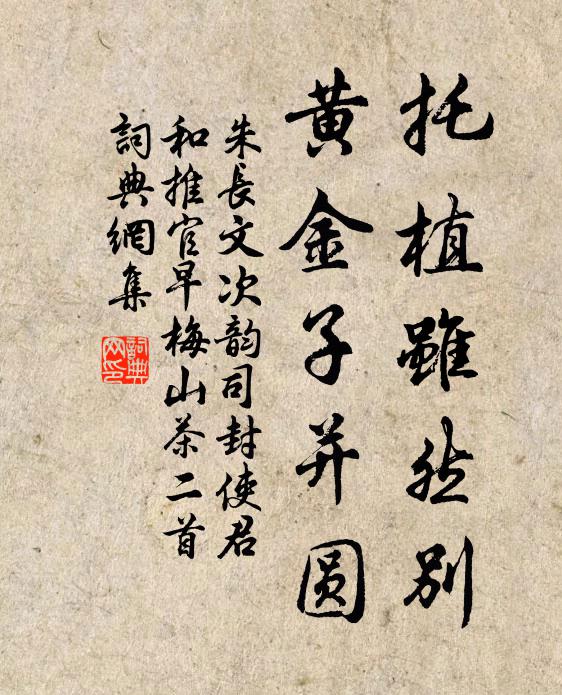 托植雖然別
黄金子并圓
朱長文次韵司封使君
和推官早梅山茶二首
詞典網集
詞典網印